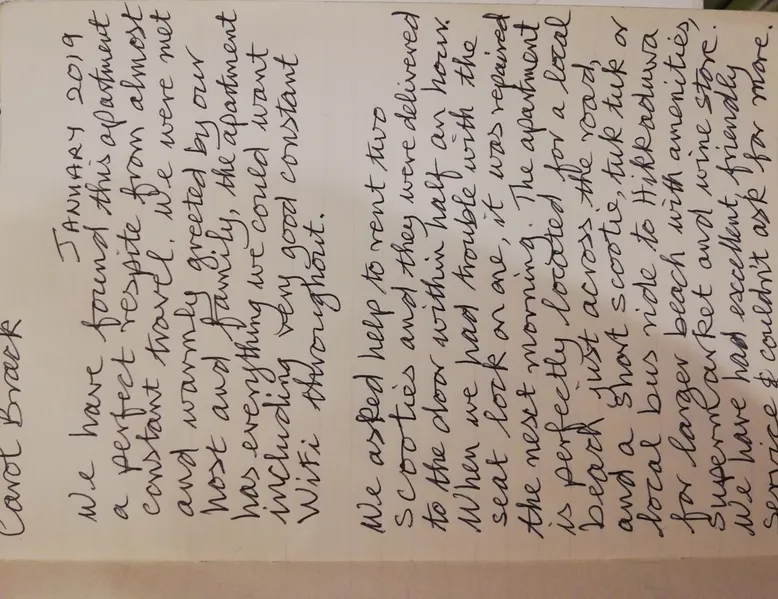 Carol Brack
JANUARY 2019
We have found this apartment
a perfect respite from almost
constant travel. We were met
and warmly greeted by our
host and family, the apartment
has everything we could want
including very good constant
WiFi throughout.
We asked help to rent two
scooties and they were delivered
to the door within half an hour.
When we had trouble with the
seat lock on one, it was repaired
the next morning. The apartment
is perfectly located for a local
beach just across the road,
and a short scootie, tuk tuk or
local bus ride to Hikkaduwa
for larger beach with amenities,
supermarket and wine store.
We have had excellent, friendly
service & couldn't ask for more.